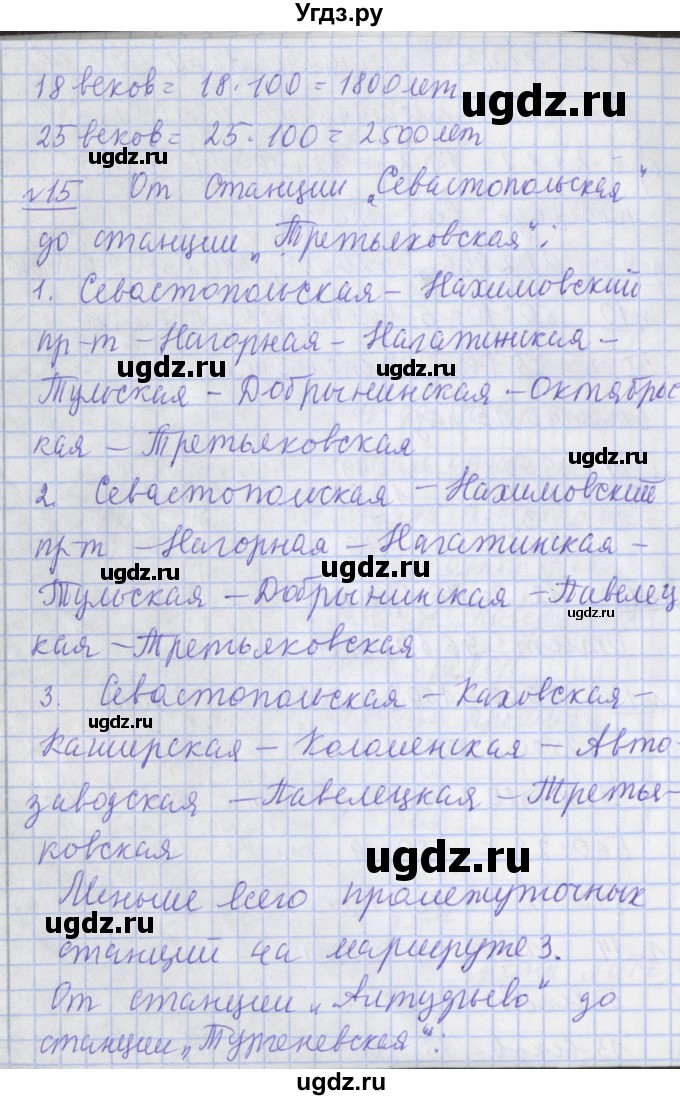 Угдз.ру
18 веков = 18 · 100 = 1800 лет
ugdz.ru
25 веков = 25 · 100 = 2500 лет
ugdz.ru
№15 От станции „Севастопольская“
до станции „Третьяковская“:
ugdz.ru
1. Севастопольская – Нахимовский
пр-т – Нагорная – Нагатинская –
ugdz.ru ugdz.ru
Тульская – Добрынинская – Октябрьс
кая – Третьяковская
ugdz.ru
2. Севастопольская – Нахимовский
пр-т – Нагорная – Нагатинская –
ugdz.ru ugdz.ru
Тульская – Добрынинская – Павелец
ugdz.ru
кая – Третьяковская
3. Севастопольская – Каховская –
ugdz.ru
Каширская – Коломенская – Авто-
заводская – Павелецкая – Третья-
ugdz.ru
ковская
ugdz.ru
Меньше всего промежуточных
ugdz.ru
станций на маршруте 3.
От станции „Алтудьево“ до
ugdz.ru
станции „Тургеневская“:
ugdz.ru